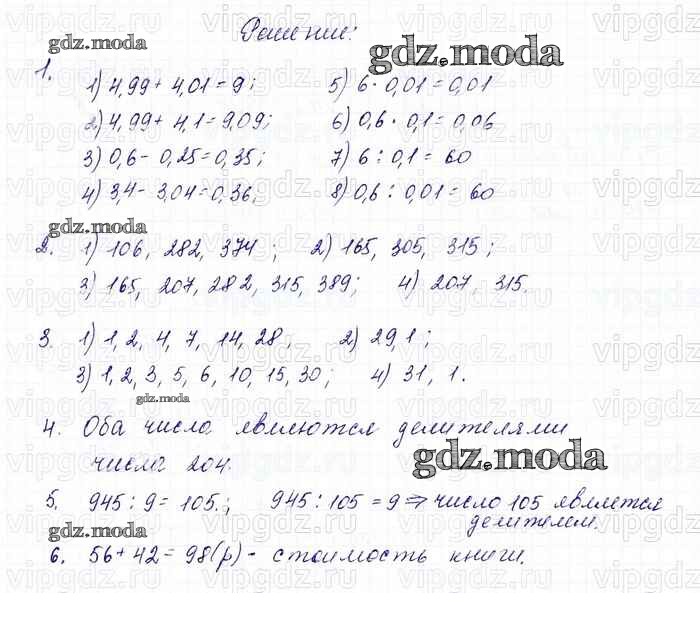 Решение:
gdz.moda
gdz.moda
1.
1) 4,99 + 4,01 = 9;
5) 6 · 0,01 = 0,01
2) 4,99 + 4,1 = 9,09;
6) 0,6 · 0,1 = 0,06
3) 0,6 - 0,25 = 0,35;
7) 6 : 0,1 = 60
4) 3,4 - 3,04 = 0,36;
8) 0,6 : 0,01 = 60
gdz.moda
2. 1) 106, 282, 374; 2) 165, 305, 315;
3) 165, 207, 282, 315, 389; 4) 207, 315.
3. 1) 1, 2, 4, 7, 14, 28, 2) 29,1;
3) 1, 2, 3, 5, 6, 10, 15, 30; 4) 31, 1.
gdz.moda
4. Оба числа являются делителями
числа 204.
gdz.moda
5. 945 : 9 = 105.; 945 : 105 = 9 ⇒ число 105 является
делителем.
gdz.moda
6. 56 + 42 = 98 (р) - стоимость книги.
vipgdz.ru